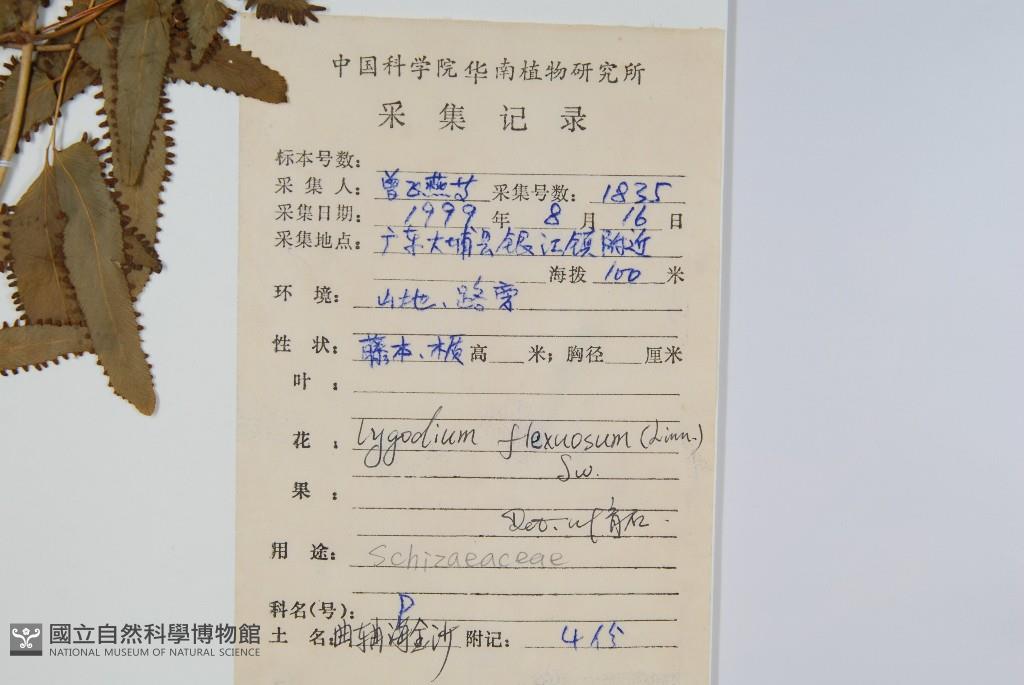 中国科学院华南植物研究所
采集记录
标本号数:
采集人: 曾飞燕等 采集号数: 1835
采集日期: 1999 年 8 月 16 日
采集地点: 广东大埔县银江镇附近
海拨 100 米
环境: 山地、路旁
性状: 藤本、木质 高 米; 胸径 厘米
叶:
花: Lygodium flexuosum (Linn.)
Sw.
果:
Det.
用途: Schizaeaceae
科名(号): P
土名: 曲轴海金沙 附记: 4份
國立自然科學博物館
NATIONAL MUSEUM OF NATURAL SCIENCE